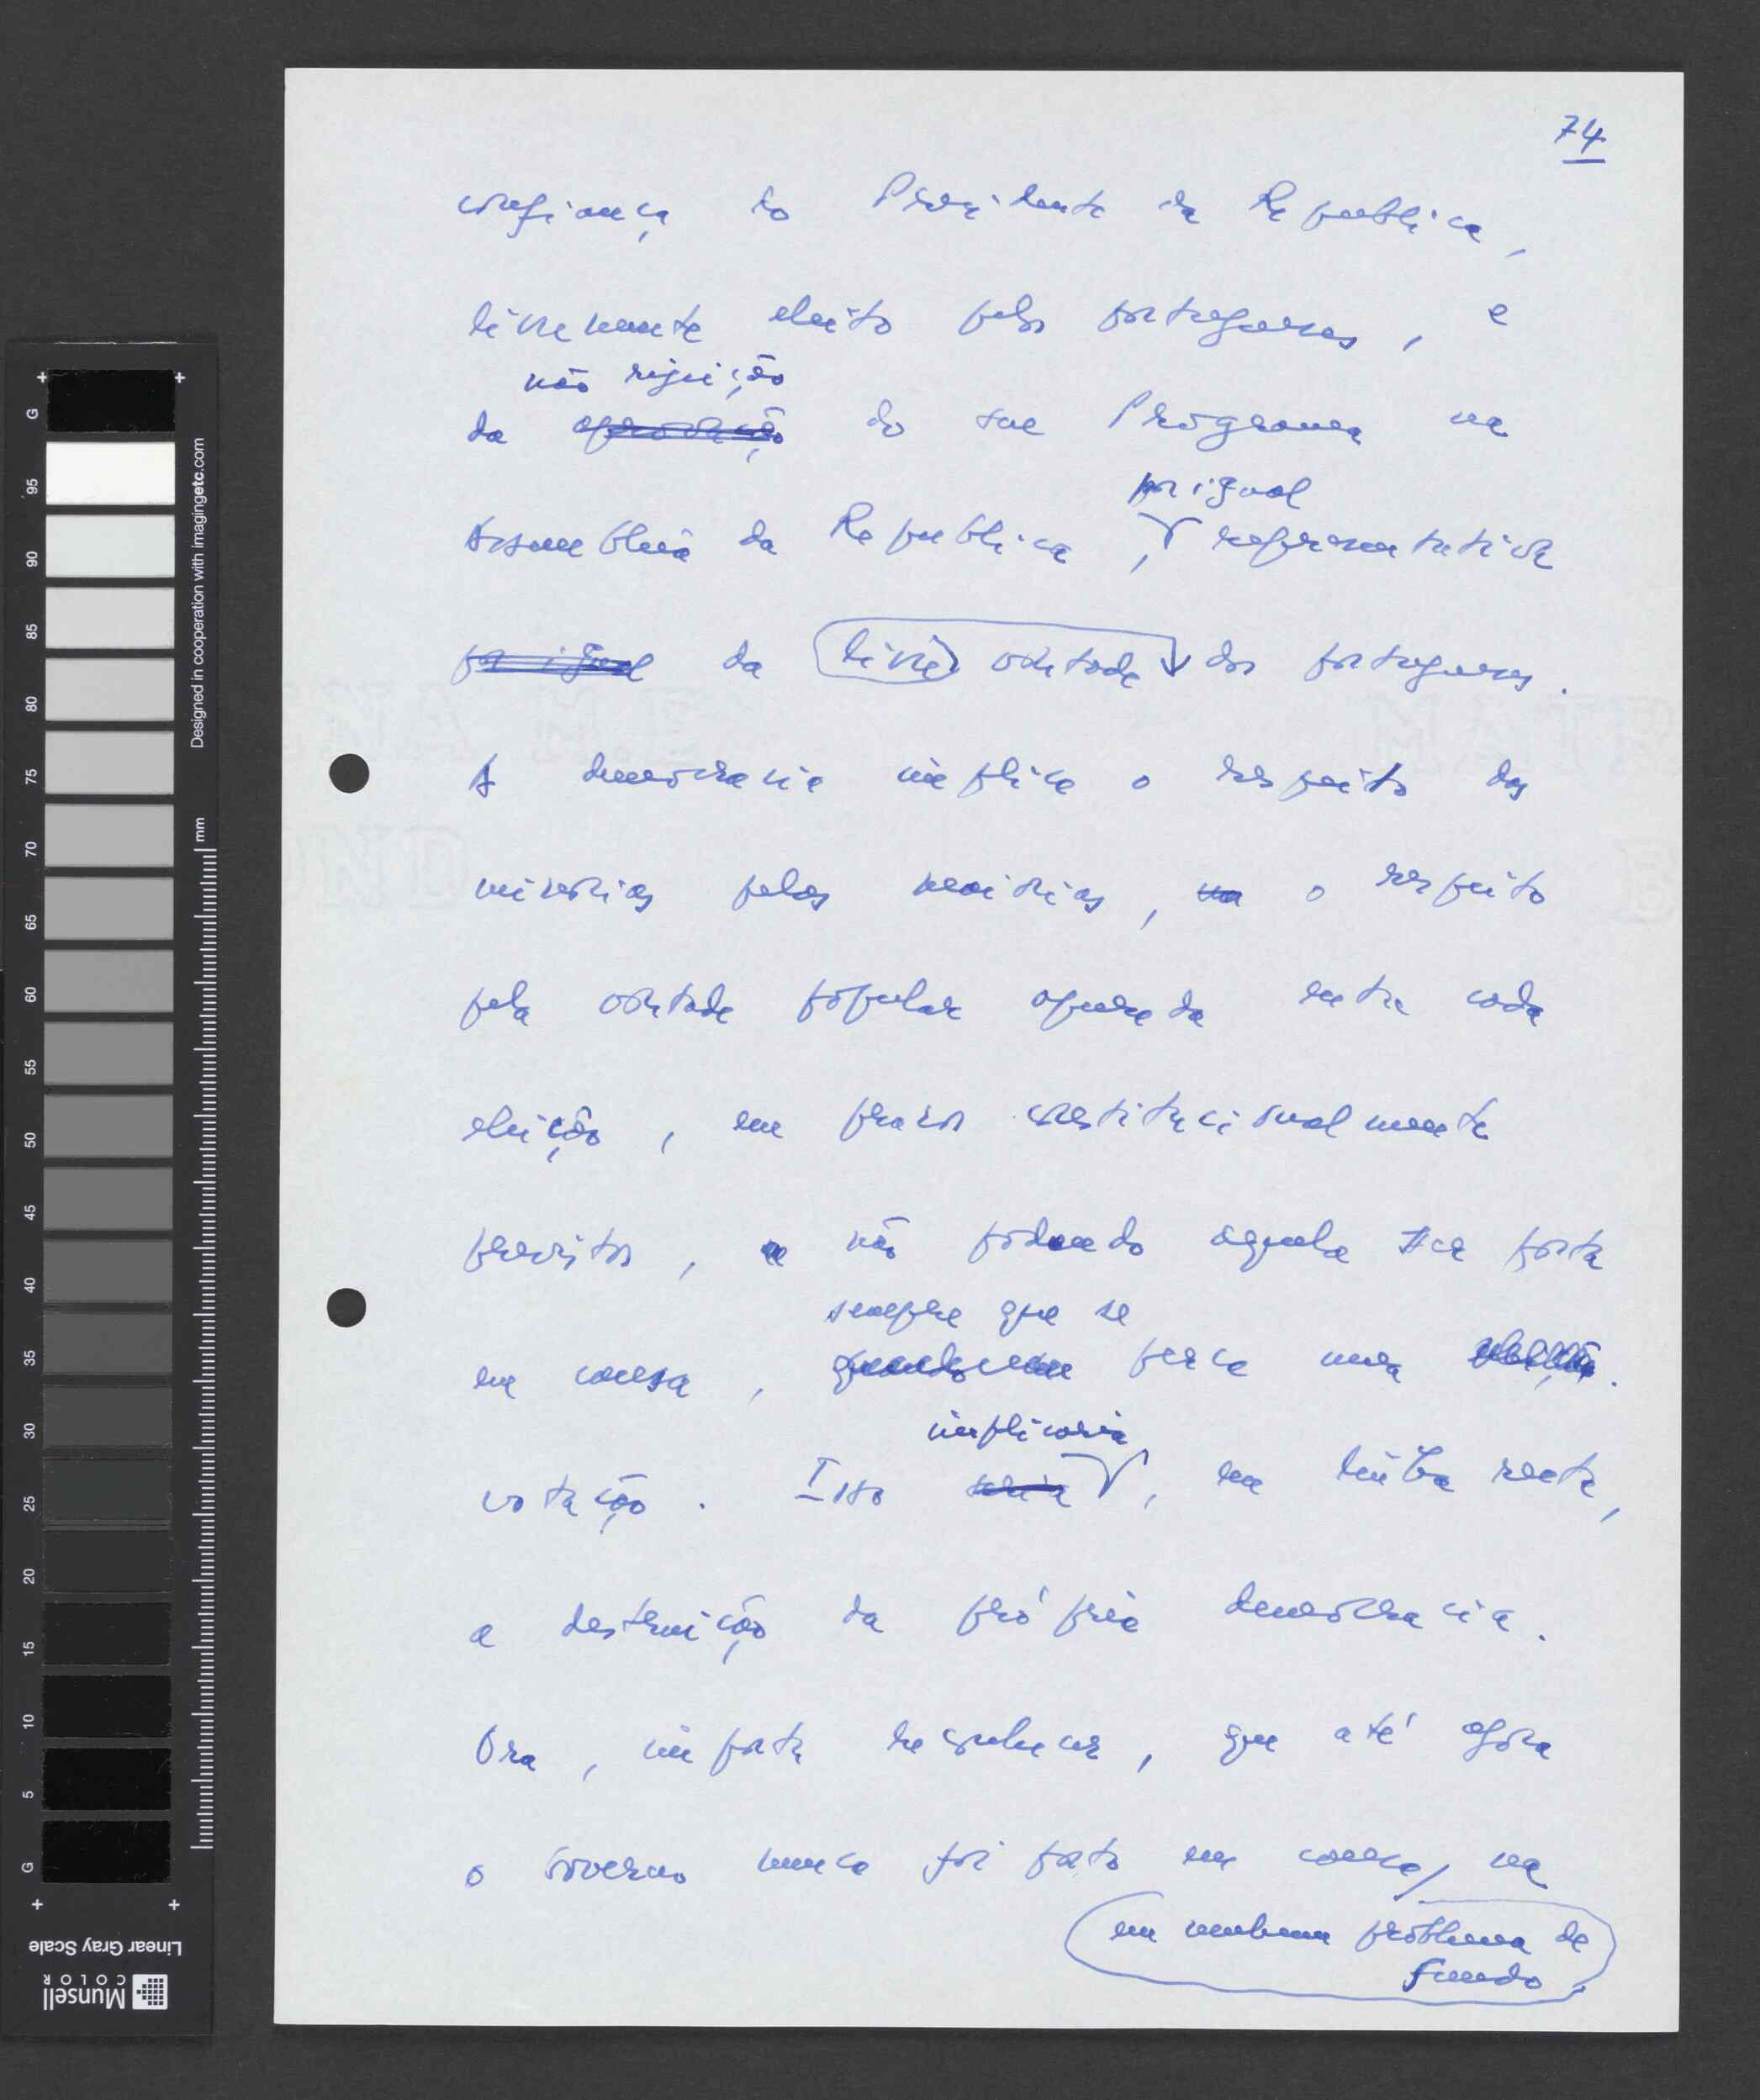 74
confiança do Presidente da Republica,
livremente eleito pelos portugueses, e
não rejeição
da aprovação do seu Programa na
por igual
Assembleia da Republica, representativa
por igual da livre vontade dos portugueses.
A democracia implica o respeito das
minorias pelas maiorias, na o respeito
pela vontade popular apurada entre cada
eleição, em prazos constitucionalmente
previstos, e não podendo aquela ser posta
sempre que se
em causa, quando perca uma
implicaria
votação. Isso seria, em linha recta,
a destruição da própria democracia.
Ora, importa reconhecer, que até agora
o Governo nunca foi posto em causa, na
em nenhum problema de
fundo,
G 95 90 85 80 75 70 65 60 55 50 45 40 35 30 25 20 15 10 5 G
mm
Designed in cooperation with imagingetc.com
Linear Gray Scale
Munsell
COLOR